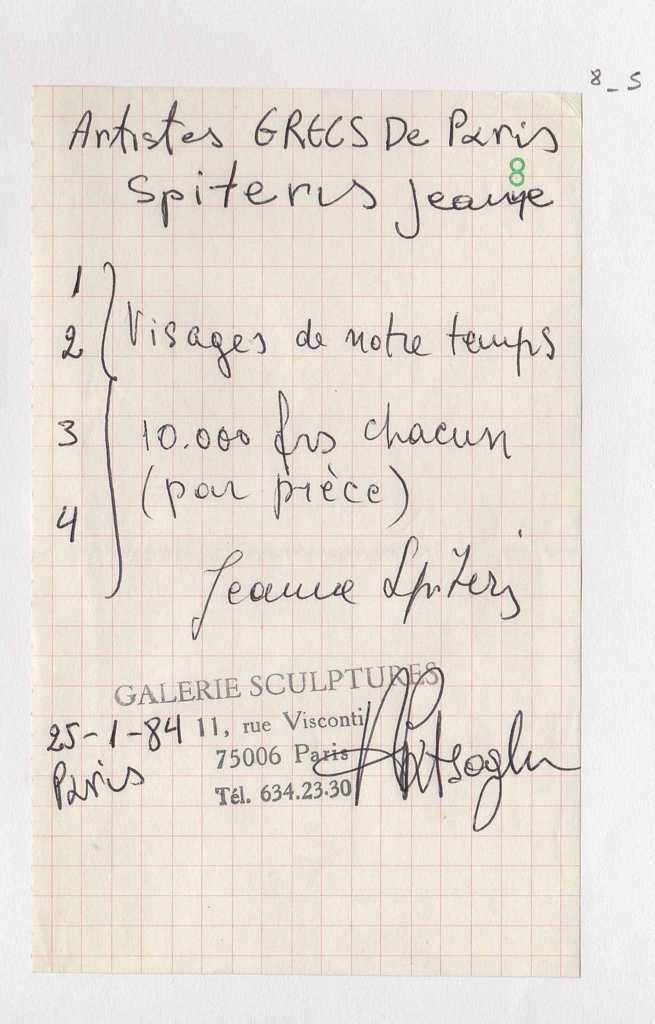 8-5
Artistes GRECS De Paris
8
Spiteris Jeanne
1
2 Visages de notre temps
3 10.000 frs chacun
(par pièce)
4
Jeanne Spiteris
GALERIE SCULPTURES
25-1-84 11, rue Visconti
75006 Paris
Paris
Tél. 634.23.30